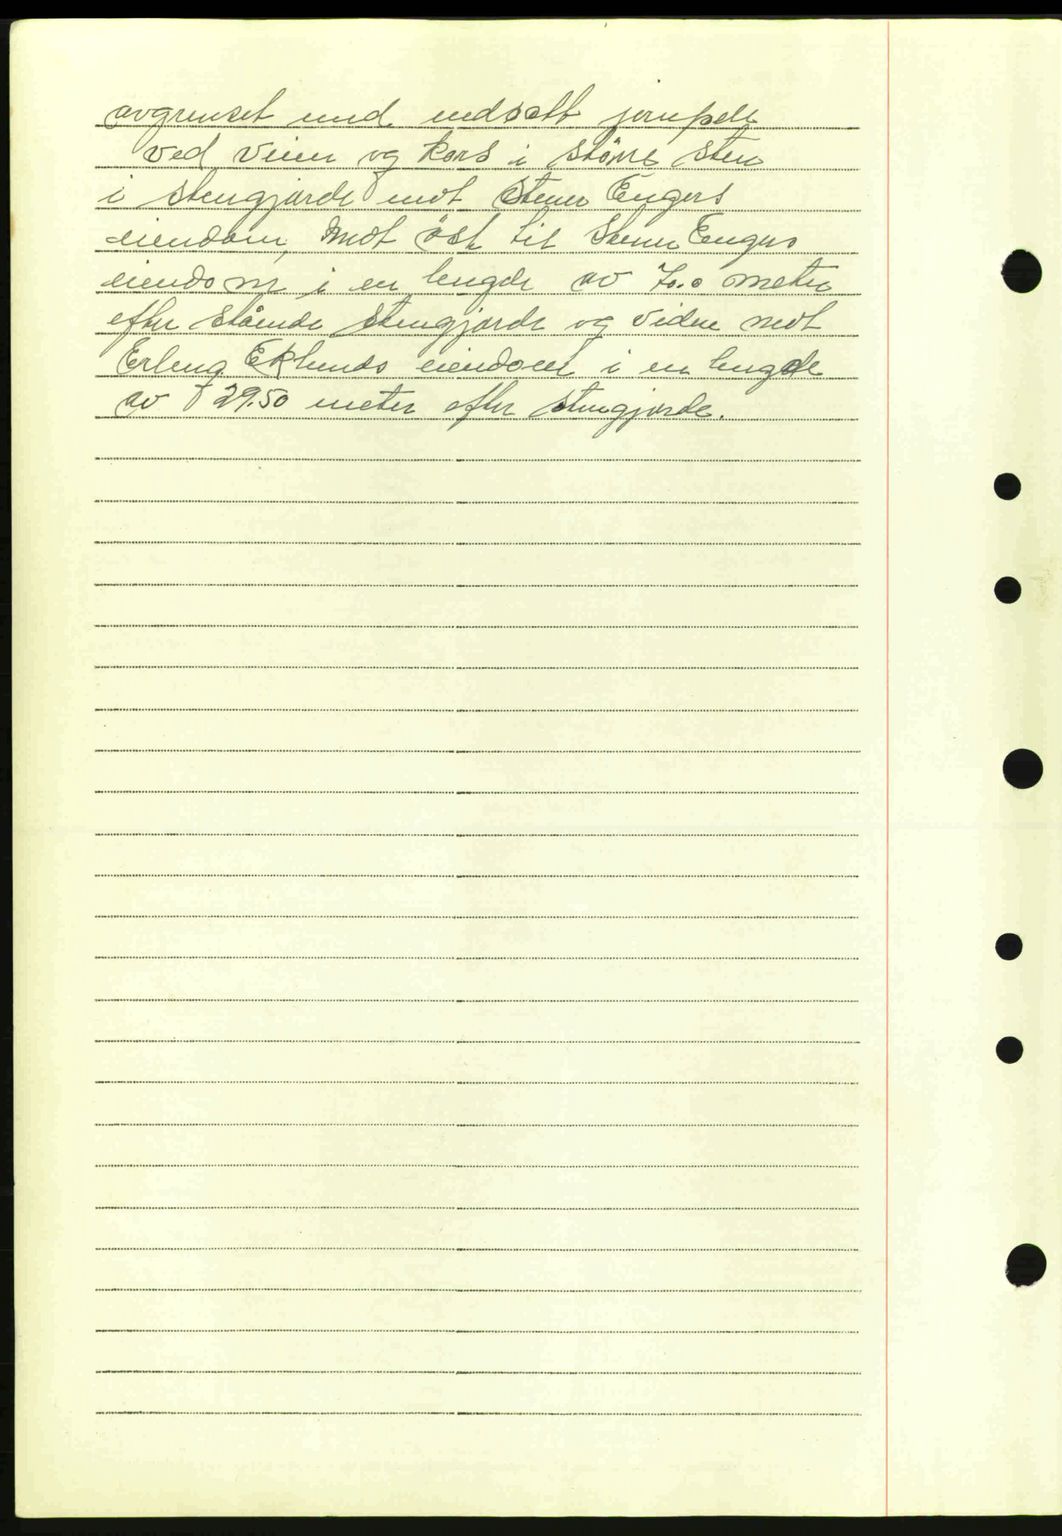 avgrenset med nedsatt jernpele
ved veien og kors i större sten
i stengjærde mot Stener Engers
eiendom, mot öst til Stener Engers
eiendom i en lengde av 70.0 meter
efter stående stengjærde og videre mot
Erling Eklunds eiendom i en lengde
av 29.50 meter efter stengjærde.